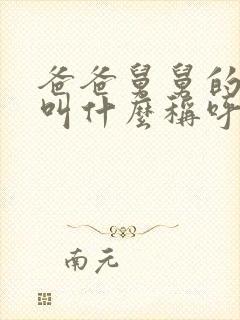 爸爸舅舅的
叫什麼稱呼
南元